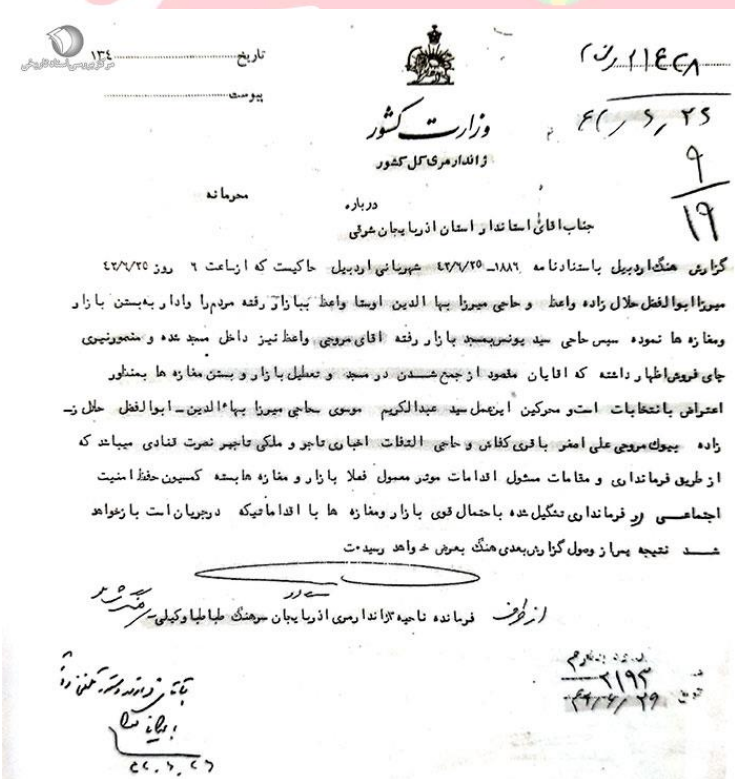 مرکز بررسی اسناد تاریخی
تاریخ ۱۳۴
پیوست
۲۱۴۲۸
وزارت کشور
ژاندارمری کل کشور
۹
۱۹
محرمانه
درباره
جناب اقای استاندار استان اذربایجان شرقی
گزارش هنگ اردبیل باستنادنامه ۱۸۸۶ـ ۴۲/۶/۲۵ شهربانی اردبیل حاکیست که ازساعت ۶ روز ۴۲/۶/۲۵
میرزا ابوالفضل حلال زاده واعظ و حاجی میرزا بها الدین اوستا واعظ ببازار رفته مردم را وادار به بستن بازار
ومغازه ها نموده سپس حاجی سید یونس بمسجد بازار رفته اقای مروجی واعظ نیز داخل مسجد شده و منصورنیری
چای فروش اظهار داشته که اقایان مقصود از جمع شدن در مسجد و تعطیل بازار و بستن مغازه ها بمنظور
اعتراض بانتخابات است و محرکین اینعمل سید عبدالکریم موسوی حاجی میرزا بهاءالدین ـ ابوالفضل حلال ز
زاده بیوک مروجی علی اصغر باقری کفاش و حاجی التفات اخباری تاجر و ملکی تاجر نصرت قنادی میباشد که
از طریق فرمانداری و مقامات مسئول اقدامات موثر معمول فعلا بازار و مغازه ها بسته کمسیون حفظ امنیت
اجتماعی در فرمانداری تشکیل شده باحتمال قوی بازار ومغازه ها با اقداماتیکه درجریان است بازخواهد
شد نتیجه پس از وصول گزارش بعدی هنگ بعرض خواهد رسید
از طرف فرمانده ناحیه ژاندارمری اذربایجان سرهنگ طباطبا وکیلی
۲۱۹۳
۴۲/۶/۲۹